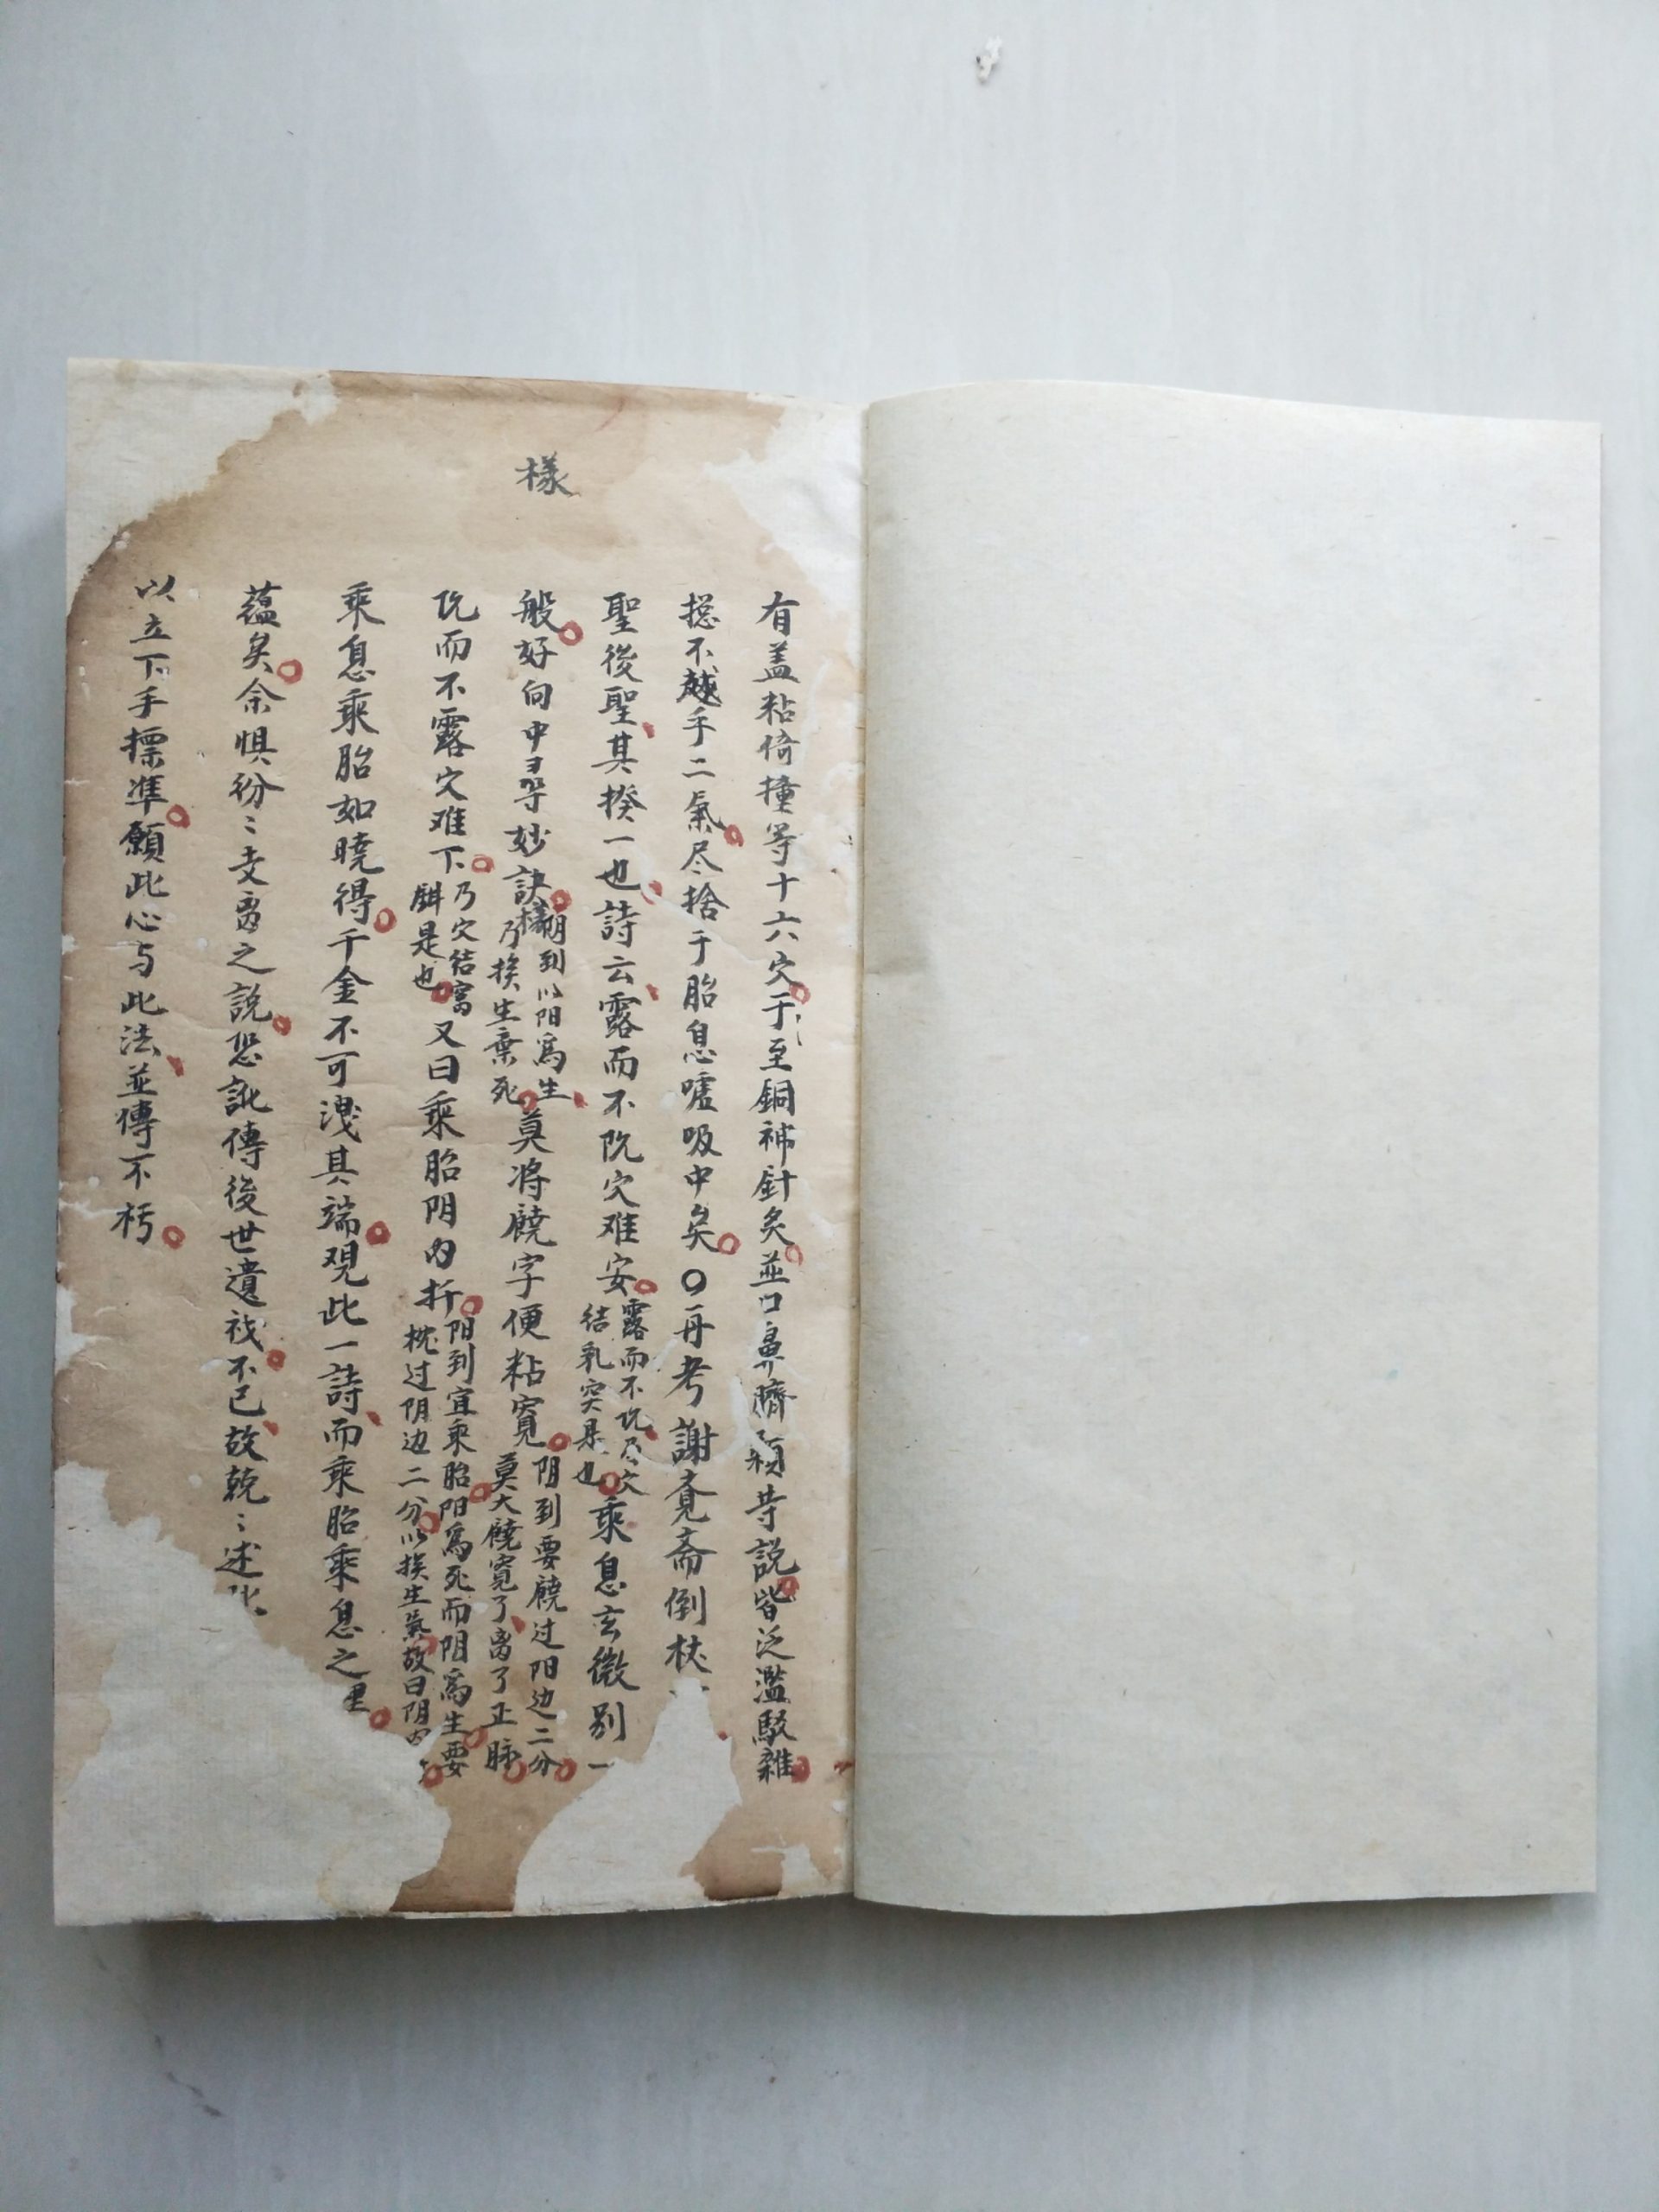 樣
有盖粘倚撞等十六穴于至銅神針灸並口鼻臍顙等説皆泛濫駁雜
捴不越乎二氣尽捨于胎息噓吸中矣〇再考謝覔斎倒杖
聖後聖其揆一也詩云露而不阮穴难安露而不阮乃穴結乳突是也乘息玄微别一
般好向中尋妙訣朝到以阳爲生樣乃挨生棄死莫将饒字便粘寬阴到要饒过阳边二分莫大饒寬了离了正脉
阮而不露穴难下乃穴結窩鉗是也又曰乘胎阴内扦阳到宜乘胎阳爲死而阴爲生要枕过阴边二分以挨生氣故曰阴内
乘息乘胎如曉得千金不可洩其端观此一詩而乘胎乘息之里
蘊矣余惧紛〻支离之説恐訛傳後世遺祸不已故乾〻述此
以立下手摽準願此心与此法並傳不朽